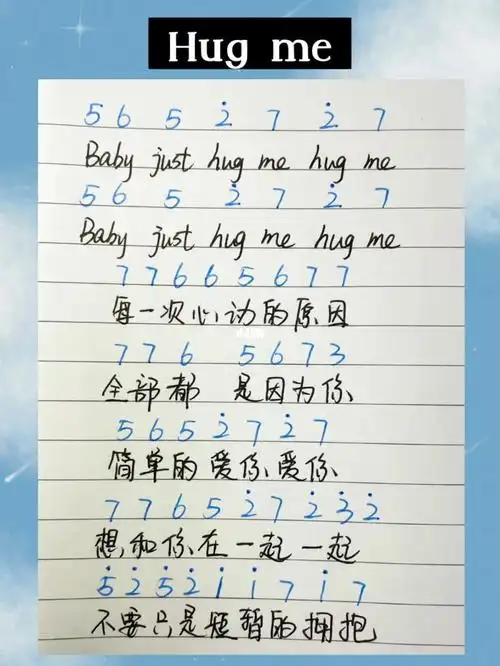 Hug me
5 6 5 2̇ 7 2̇ 7
Baby just hug me hug me
5 6 5 2̇ 7 2̇ 7
Baby just hug me hug me
7 7 6 6 5 6 7 7
每一次心动的原因
7 7 6 5 6 7 3
全部都 是因为你
5 6 5 2̇ 7 2̇ 7
简单的爱你爱你
7 7 6 5 2̇ 7 2̇ 3̇ 2̇
想和你在一起一起
5̇ 2̇ 5̇ 2̇ 1̇ 1̇ 7 1̇ 7
不要只是短暂的拥抱